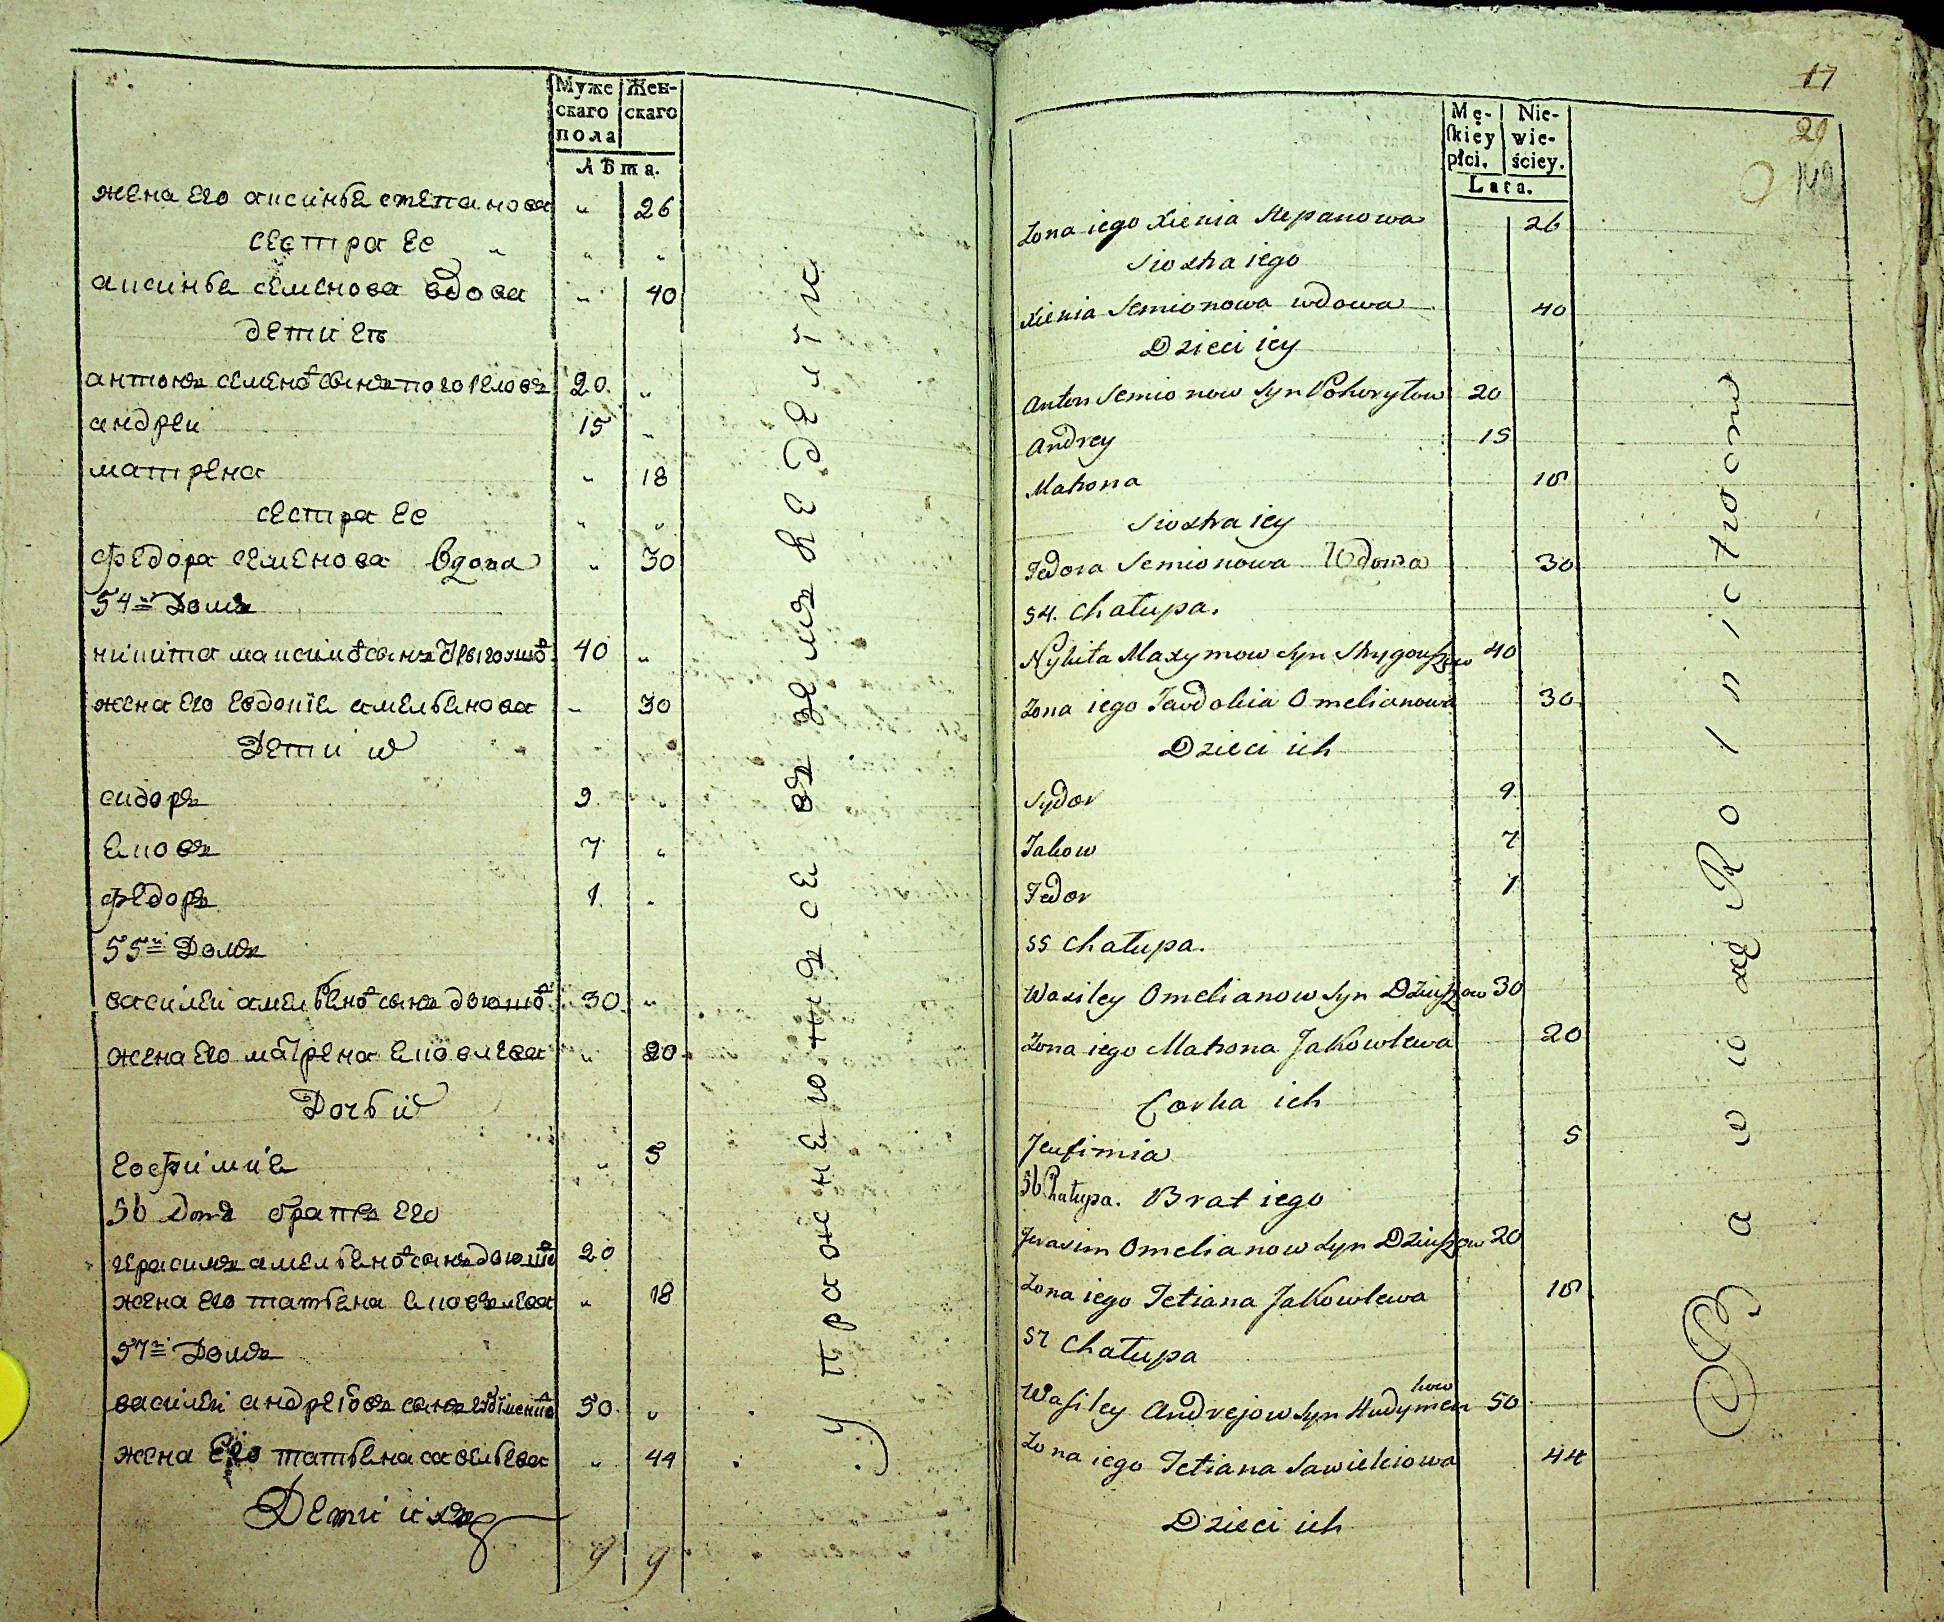 Муже скаго пола
Жен- скаго
Лѣта.
жена его аксинья степанова " 26
сестра ее " " "
аксинья семенова вдова " 40
дети еѣ
антонъ семено͡в сынъ погорѣловъ 20. "
андреи 15 "
матрена " 18
сестра ее " "
федора семенова Вдова " 30
54й Домъ
никита максимо͡в сынъ 40 "
жена его евдокія амельянова " 30
Дети и͡х
сидоръ 9. "
яковъ 7 "
федоръ 1. "
55й Домъ
василеи амельяно͡в сынъ дзюшо͡в 30. "
жена его матрена яковлева " 20.
Дочь и͡х
евфимия " 5
56 Домъ братъ его
герасимъ амельяно͡в сынъ дзюшо͡в 20
жена его татьяна яковлева " 18
57й Домъ
василеи андреювъ сынъ 50. "
жена его татьяна савельева " 44
Дети ихъ
9 9
упражняютца въ земледелги
17
29
149
Mę- skiey płci.
Nie- wie- ściey.
Lata.
Zona iego Xienia Stepanowa 26
Siostra iego
Xienia Semionowa wdowa 40
Dzieci iey
Anton Semionow Syn Pohorytow 20
Andrey 15
Matrona 18
Siostra iey
Fedora Semionowa Wdowa 30
54. Chałupa.
Nykita Maxymow Syn 40
Zona iego Jawdokia Omelianowa 30
Dzieci ich
Sydor 9
Jakow 7
Fedor 1
55 Chałupa.
Wasiley Omelianow Syn Dziuszow 30
Zona iego Matrona Jakowlewa 20
Corka ich
Jeufimia 5
56 Chałupa. Brat iego
Jerasim Omelianow Syn Dziuszow 20
Zona iego Tetiana Jakowlewa 18
57 Chałupa
Wasiley Andrejow Syn Hudymenkow 50
Zona iego Tetiana Sawielciowa 44
Dzieci ich
Bawią się Rolnictwom